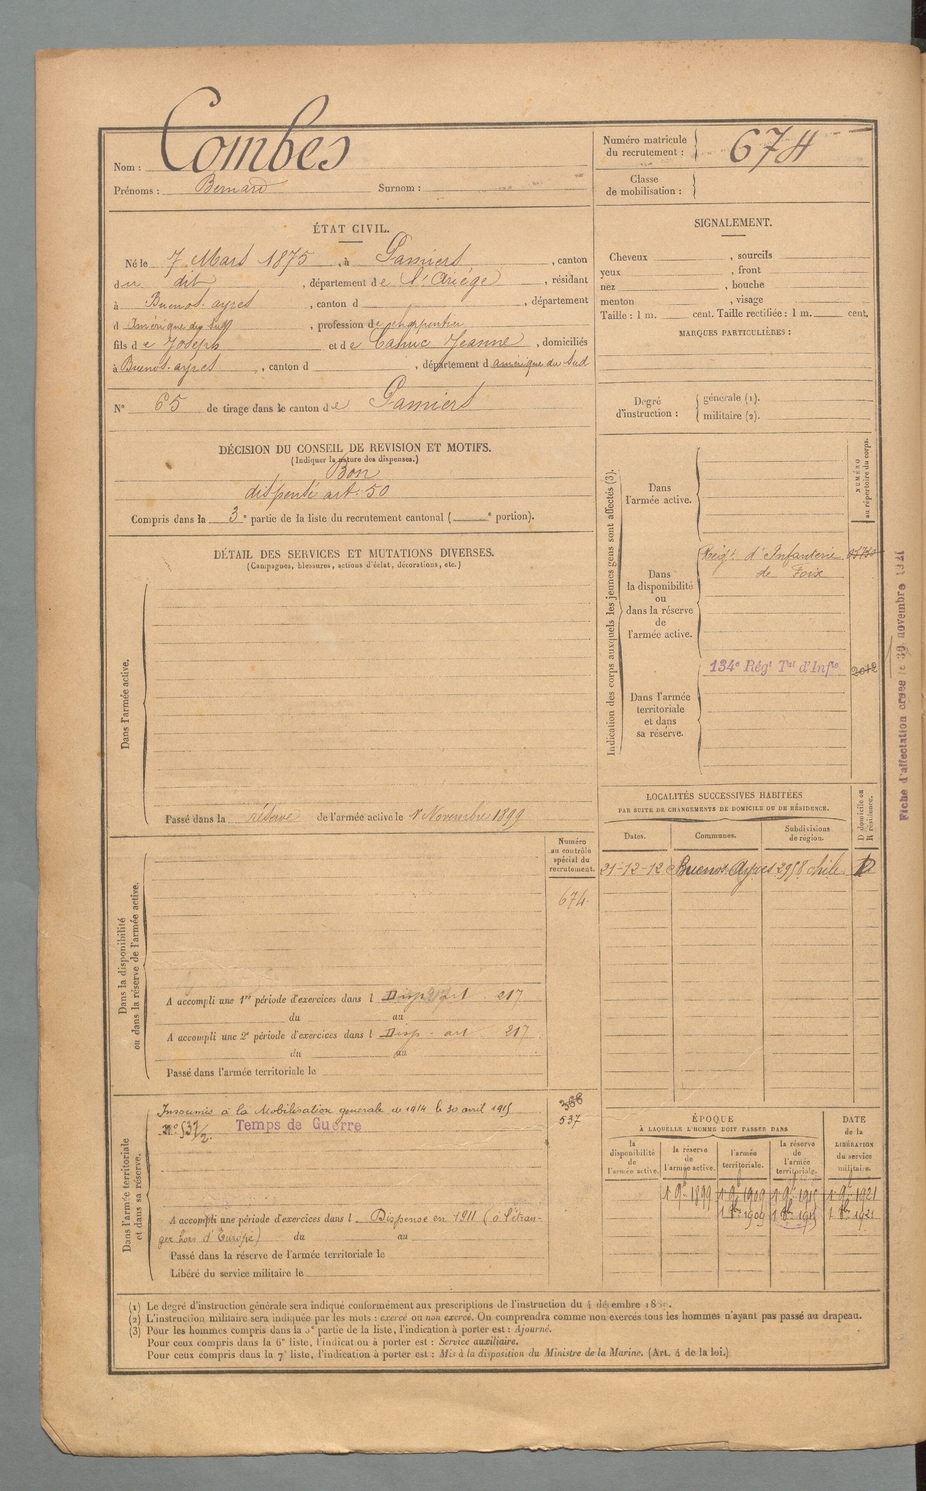 Nom : Combes
Prénoms : Bernard Surnom :
Numéro matricule du recrutement : 674
Classe de mobilisation :
ÉTAT CIVIL.
Né le 7 Mars 1875, à Pamiers, canton
du dit, département de l'Ariège, résidant
à Buenos-ayres, canton d , département
d Amérique du Sud, profession de charpentier
fils de Joseph et de Jeanne, domiciliés
à Buenos-ayres, canton d , département d amérique du Sud
N° 65 de tirage dans le canton de Pamiers
DÉCISION DU CONSEIL DE REVISION ET MOTIFS.
(Indiquer la nature des dispenses.)
Bon
dispensé art. 50
Compris dans la 3e partie de la liste du recrutement cantonal ( e portion).
DÉTAIL DES SERVICES ET MUTATIONS DIVERSES.
(Campagnes, blessures, actions d'éclat, décorations, etc.)
Dans l'armée active.
Passé dans la réserve de l'armée active le 1 Novembre 1899
Numéro
au contrôle
spécial du
recrutement.
674
Dans la disponibilité
ou dans la réserve de l'armée active.
A accompli une 1re période d'exercices dans l Disp art 217
du au
A accompli une 2e période d'exercices dans l Disp - art 217
du au
Passé dans l'armée territoriale le
Dans l'armée territoriale
et dans sa réserve.
Insoumis à la Mobilisation generale de 1914 le 30 avril 1915
388
537
Temps de Guerre
A accompli une période d'exercices dans l Dispense en 1911 (à l'étran-
ger hors d'Europe) du au
Passé dans la réserve de l'armée territoriale le
Libéré du service militaire le
SIGNALEMENT.
Cheveux , sourcils
yeux , front
nez , bouche
menton , visage
Taille : 1 m. cent. Taille rectifiée : 1 m. cent.
MARQUES PARTICULIÈRES :
Degré
d'instruction :
générale (1).
militaire (2).
Indication des corps auxquels les jeunes gens sont affectés (3).
NUMÉRO
au répertoire du corps.
Dans
l'armée active.
Dans
la disponibilité
ou
dans la réserve
de
l'armée active.
Régt. d'Infanterie
de Foix
Dans l'armée
territoriale
et dans
sa réserve.
134e Régt Tal d'Infie
Fiche d'affectation créée le 30 novembre 1921
LOCALITÉS SUCCESSIVES HABITÉES
PAR SUITE DE CHANGEMENTS DE DOMICILE OU DE RÉSIDENCE.
Dates. Communes. Subdivisions de région. D domicile ou R résidence.
21-12-12 Buenos Ayres 2958 chile D
ÉPOQUE
À LAQUELLE L'HOMME DOIT PASSER DANS
la disponibilité de l'armée active.
la réserve de l'armée active.
l'armée territoriale.
la réserve de l'armée territoriale.
DATE de la LIBÉRATION du service militaire.
1 9bre 1899 1 9bre 1909 1 9bre 1915 1 9bre 1921
1 8bre 1909 1 8bre 1915 1 8bre 1921
(1) Le degré d'instruction générale sera indiqué conformément aux prescriptions de l'instruction du 4 décembre
(2) L'instruction militaire sera indiquée par les mots : exercé ou non exercé. On comprendra comme non exercés tous les hommes n'ayant pas passé au drapeau.
(3) Pour les hommes compris dans la 5e partie de la liste, l'indication à porter est : Ajourné.
Pour ceux compris dans la 6e liste, l'indication à porter est : Service auxiliaire.
Pour ceux compris dans la 7e liste, l'indication à porter est : Mis à la disposition du Ministre de la Marine. (Art. 4 de la loi.)